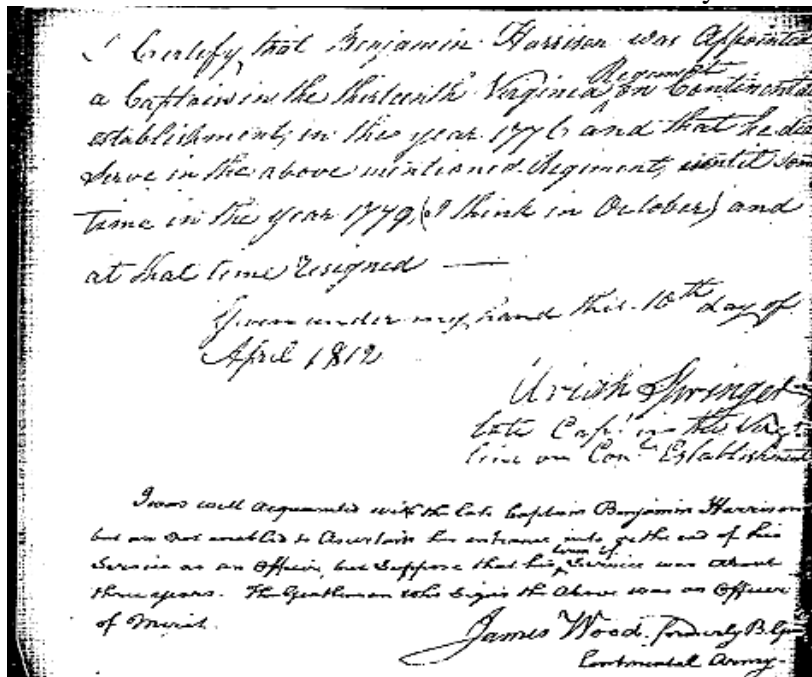 I Certify, that Benjamin Harrison was Appointed
a Captain in the thirteenth Virginia Regiment on Continental
establishment, in the year 1776 and that he did
Serve in the above mentioned Regiment, until som
time in the year 1779, (I think in October) and
at that time resigned —
Given under my hand this 10th day of
April 1812
Uriah Springer
late Capt. in the Virga.
line on Contl. Establishment
I was well acquainted with the late Captain Benjamin Harrison
but am not enabled to Ascertain his entrance into or the end of his
Service as an Officer, but Suppose that his term of Service was about
three years. The Gentleman who Signs the Above was an Officer
of Merit.
James Wood. formerly B. Gen
Continental Army-